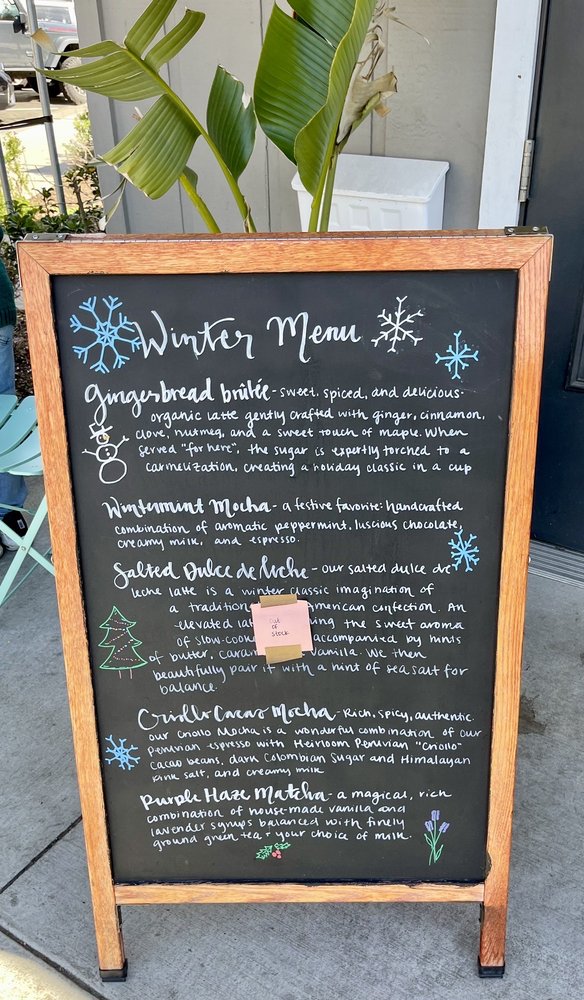 Winter Menu
gingerbread brûlée - sweet, spiced, and delicious.
organic latte gently crafted with ginger, cinnamon,
clove, nutmeg, and a sweet touch of maple. When
served "for here", the sugar is expertly torched to a
carmelization, creating a holiday classic in a cup
Wintermint Mocha - a festive favorite: handcrafted
combination of aromatic peppermint, luscious chocolate,
creamy milk, and espresso.
Salted Dulce de leche - our salted dulce de
leche latte is a winter classic imagination of
a tradition american confection. An
elevated la the sweet aroma
of slow-cook accompanied by hints
of butter, caram vanilla. We then
beautifully pair it with a hint of sea salt for
balance.
out
of
stock
Criollo Cacao Mocha - Rich, spicy, authentic.
our criollo mocha is a wonderful combination of our
Peruvian espresso with Heirloom Peruvian "Criollo"
cacao beans, dark Colombian Sugar and Himalayan
pink salt, and creamy milk
Purple Haze Matcha - a magical, rich
combination of house-made vanilla and
lavender syrups balanced with finely
ground green tea + your choice of milk.